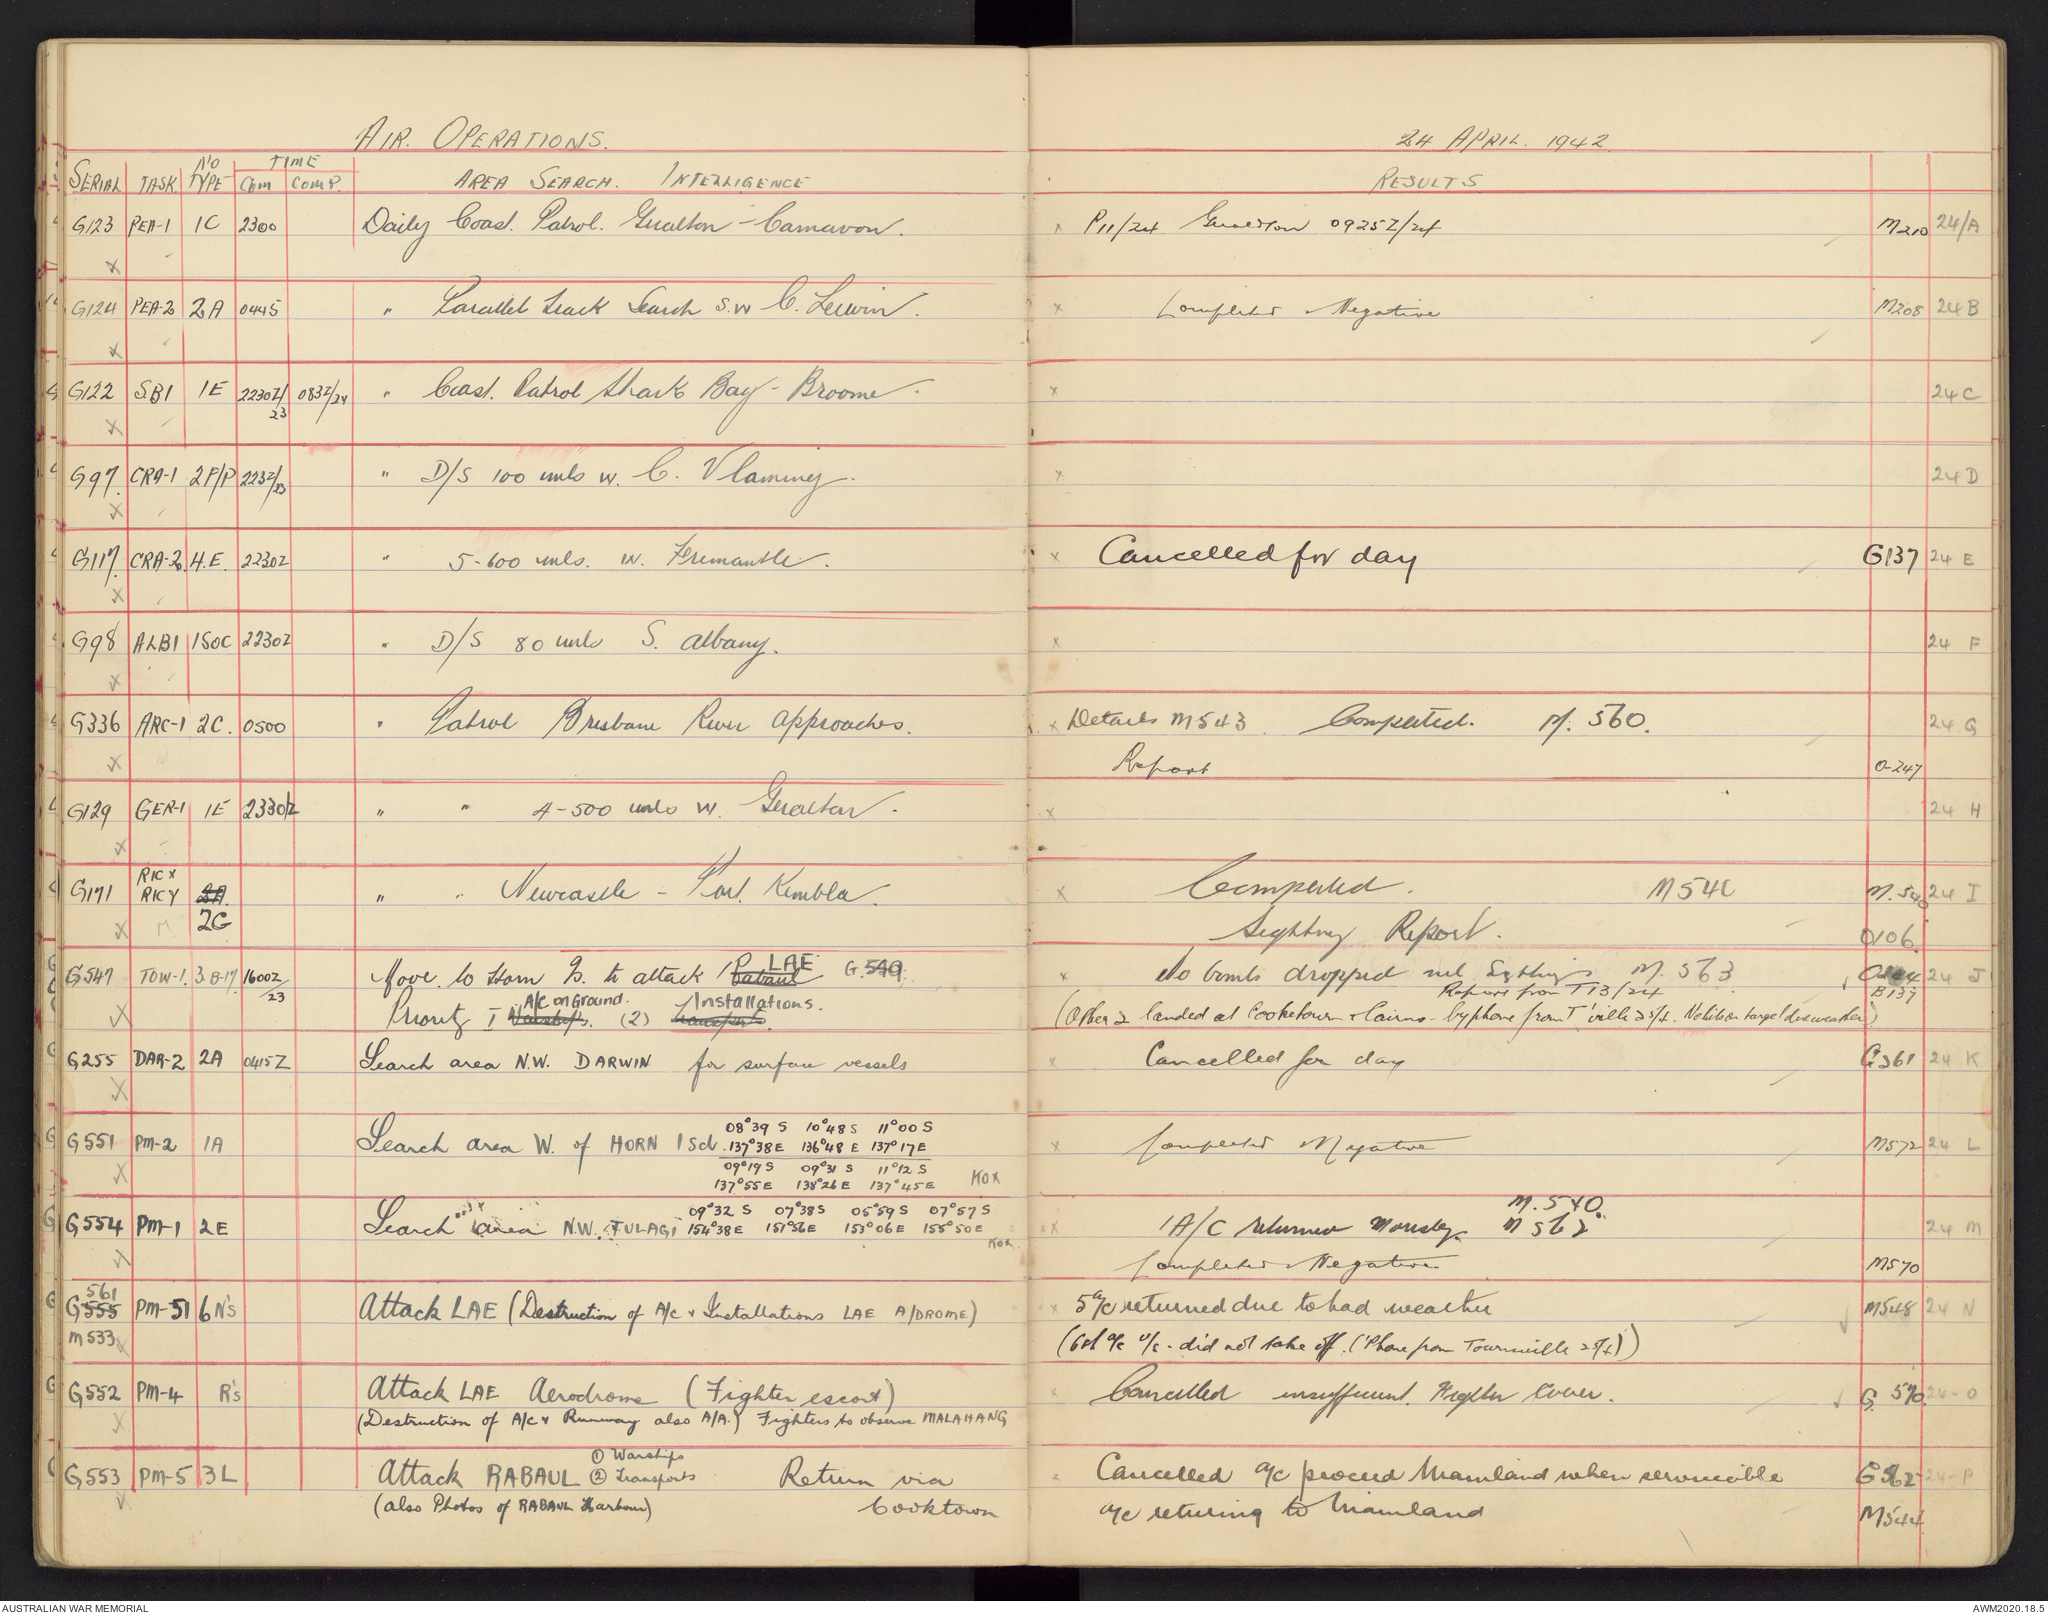 AIR. OPERATIONS.
24 APRIL. 1942.
SERIAL TASK NO TYPE TIME COM COMP. AREA SEARCH. INTELLIGENCE
RESULTS
G123 PEA-1 1C 2300 Daily Coast. Patrol. Geralton - Carnavon. x P11/24 Geraldton 0925Z/24 M210 24/A
G124 PEA-2 2A 0445 " Parallel Track Search S.W C. Leuwin. x Completed Negative M208 24 B
G122 SB1 1E 2230Z/23 083Z/24 " Coast. Patrol Shark Bay - Broome. x 24 C
G97. CRA-1 2P/P 223Z/23 " D/S 100 mls W. C. Vlaming. x 24 D
G117. CRA-2. 4.E. 2230Z " 5-600 mls. W. Fremantle. x Cancelled for day G137 24 E
G98 ALB1 1SOC 2230Z " D/S 80 mls S. Albany. x 24 F
G336 ARC-1 2C. 0500 " Patrol Brisbane River Approaches. x Details M543. Completed. M. 560. 24 G
Report O-247
G129 GER-1 1E 2330Z " " 4-500 mls W. Geralton. x 24 H
G171 RICX RICY 2A. 2C " " Newcastle - Port. Kembla. x Completed. M540 M.540 24 I
Sighting Report. O106.
G547 TOW-1. 3 B-17 1600Z/23 Move to Horn Is. to attack LAE Rabaul G.549. x No bombs dropped nil Sighting M. 563 24 J
Report from T13/24 B137
Priority 1 A/C on Ground. Warships. (2) Installations. Transports.
(Other 2 landed at Cooketown & Cairns - by phone from T'ville 25/4. No hits on target due weather)
G255 DAR-2 2A 0415Z Search area N.W. DARWIN for surface vessels x Cancelled for day G361 24 K
G551 PM-2 1A Search area W. of HORN Isd. 08°39 S 10°48 S 11°00 S
137°38 E 136°48 E 137°17 E
09°19 S 09°31 S 11°12 S
137°55 E 138°26 E 137°45 E KOX
x Completed Negative M572 24 L
G554 PM-1 2E Search area N.W. TULAGI 09°32 S 07°38 S 05°59 S 07°57 S
154°38 E 151°56 E 153°06 E 155°50 E KOX
M. 540.
x 1 A/C returned M 562 24 M
Completed Negative M570
561
G555 PM-51 6 N's Attack LAE (Destruction of A/c & Installations LAE A/DROME) x 5 a/c returned due to bad weather M548 24 N
M533
(6th a/c u/s - did not take off. ('Phone from Townsville 25/4))
G552 PM-4 R's Attack LAE Aerodrome (Fighter escort) Cancelled insufficient. Fighter Cover. G 570. 24-O
(Destruction of A/C & Runway also A/A.) Fighters to observe MALAHANG
G553 PM-5 3L Attack RABAUL ① Warships ② Transports Return via Cooktown Cancelled a/c proceed Mainland when serviceable G562 24-P
(also Photos of RABAUL Harbour)
a/c returning to Mainland M544
AUSTRALIAN WAR MEMORIAL
AWM2020.18.5